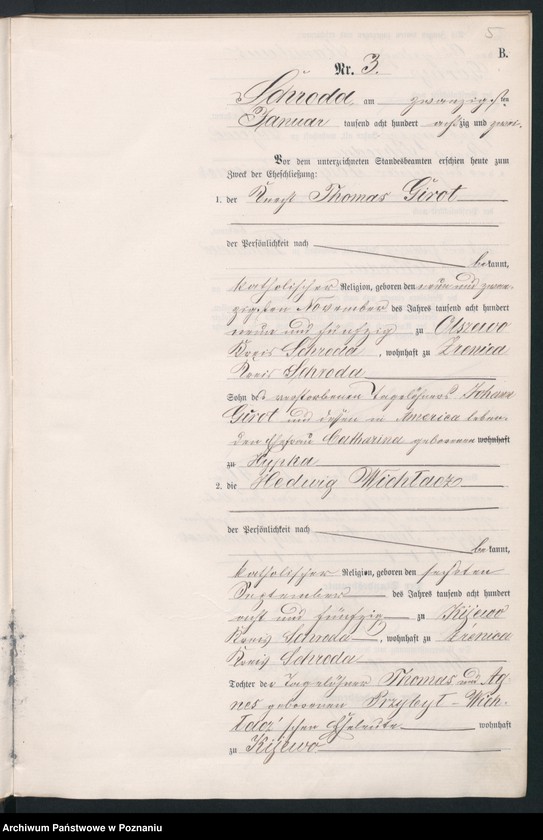 5
B.
Nr. 3.
Schroda am zwanzigsten
Januar tausend acht hundert achtzig und zwei.
Vor dem unterzeichneten Standesbeamten erschien heute zum
Zweck der Eheschließung:
1. der Knecht Thomas Girot
der Persönlichkeit nach
bekannt,
katholischer Religion, geboren den neun und zwan-
zigsten November des Jahres tausend acht hundert
neun und fünfzig zu Olszewo
Kreis Schroda, wohnhaft zu Zrenica
Kreis Schroda
Sohn des verstorbenen Tagelöhners Johann
Girot und dessen in America leben-
den Ehefrau Catharina geborenen wohnhaft
zu Hypka
2. die Hedwig Wichłacz
der Persönlichkeit nach
bekannt,
katholischer Religion, geboren den sechsten
September des Jahres tausend acht hundert
acht und fünfzig zu Kijewo
Kreis Schroda, wohnhaft zu Zrenica
Kreis Schroda
Tochter der Tagelöhner Thomas und Ag-
nes geborenen Przybył-Wich-
łacz'schen Eheleute wohnhaft
zu Kijewo
Archiwum Państwowe w Poznaniu